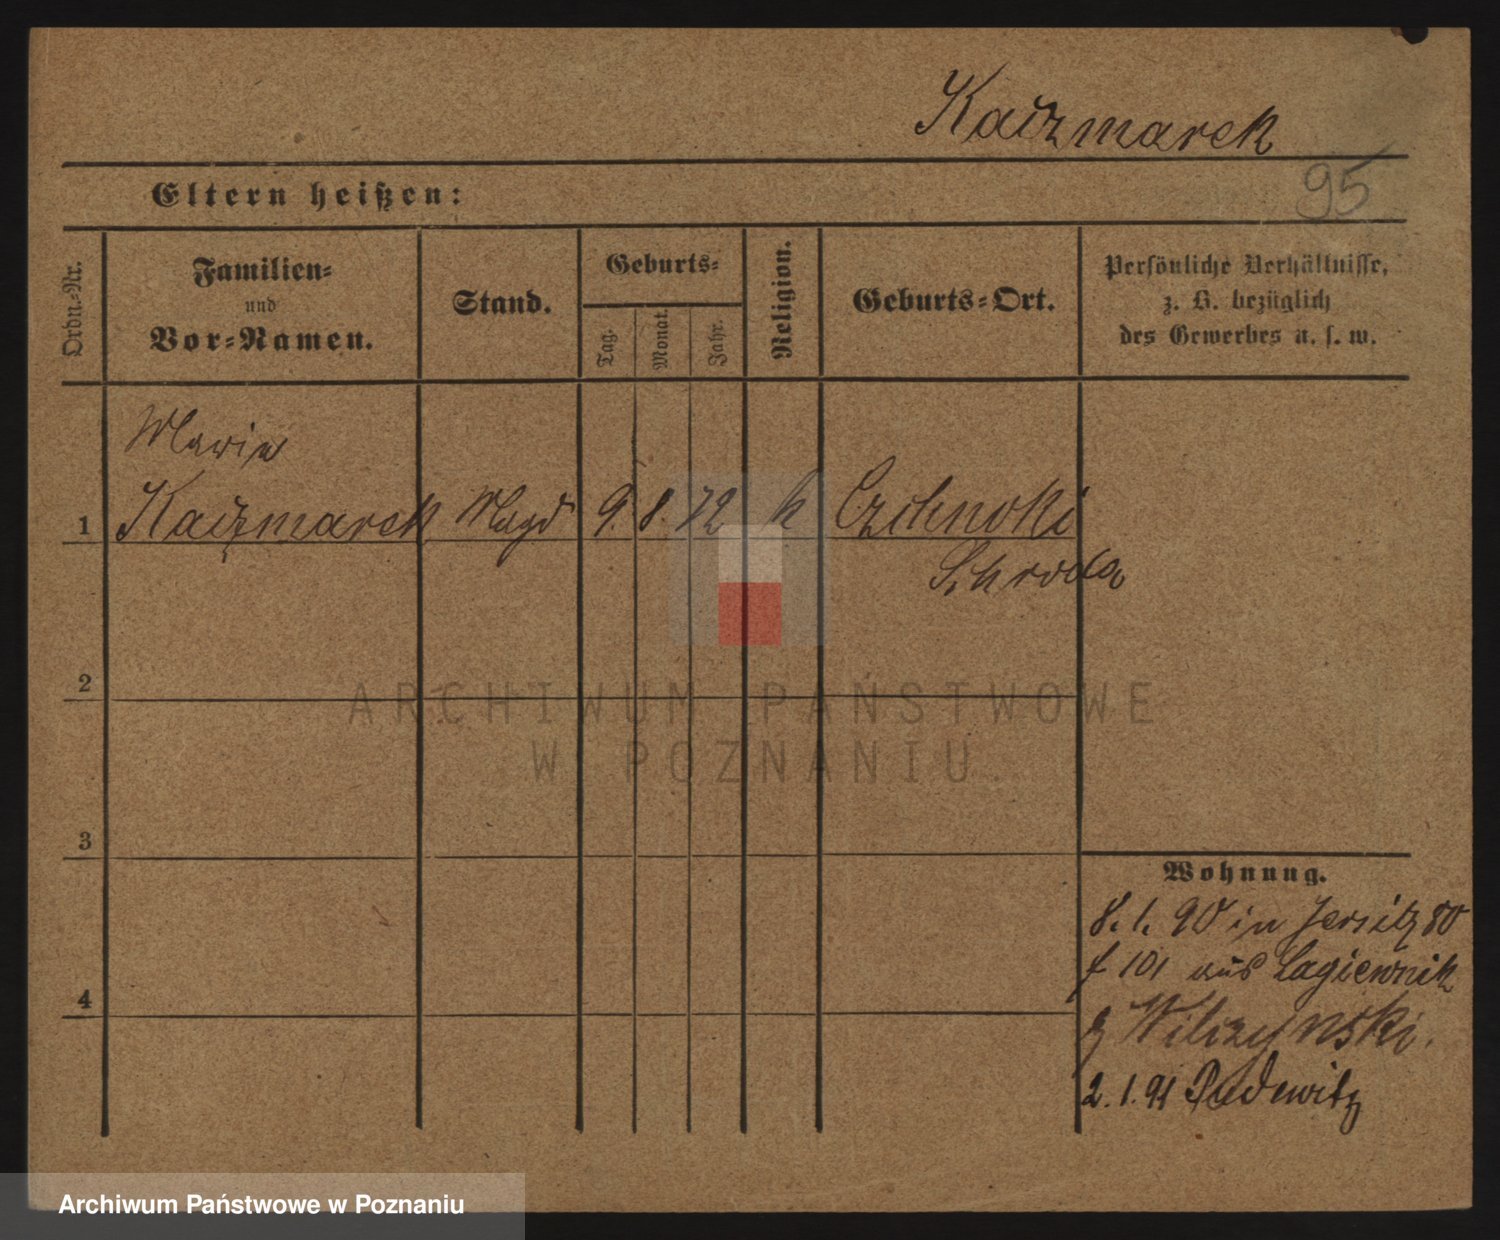 Kaczmarek
95
Eltern heißen:
Ordn.-Nr.
Familien- und Vor-Namen.
Stand.
Geburts-
Tag.
Monat.
Jahr.
Religion.
Geburts-Ort.
Persönliche Verhältnisse,
z. B. bezüglich
des Gewerbes u. s. w.
Maria
1 Kaczmarek Magd 9. 8. 72 k
Schroda
2
ARCHIWUM PAŃSTWOWE
W POZNANIU
3
Wohnung.
8. 1. 90 in Jersitz 80
101 aus Lagiewnik
Wilczynski.
2. 1. 91 Pudewitz
4
Archiwum Państwowe w Poznaniu